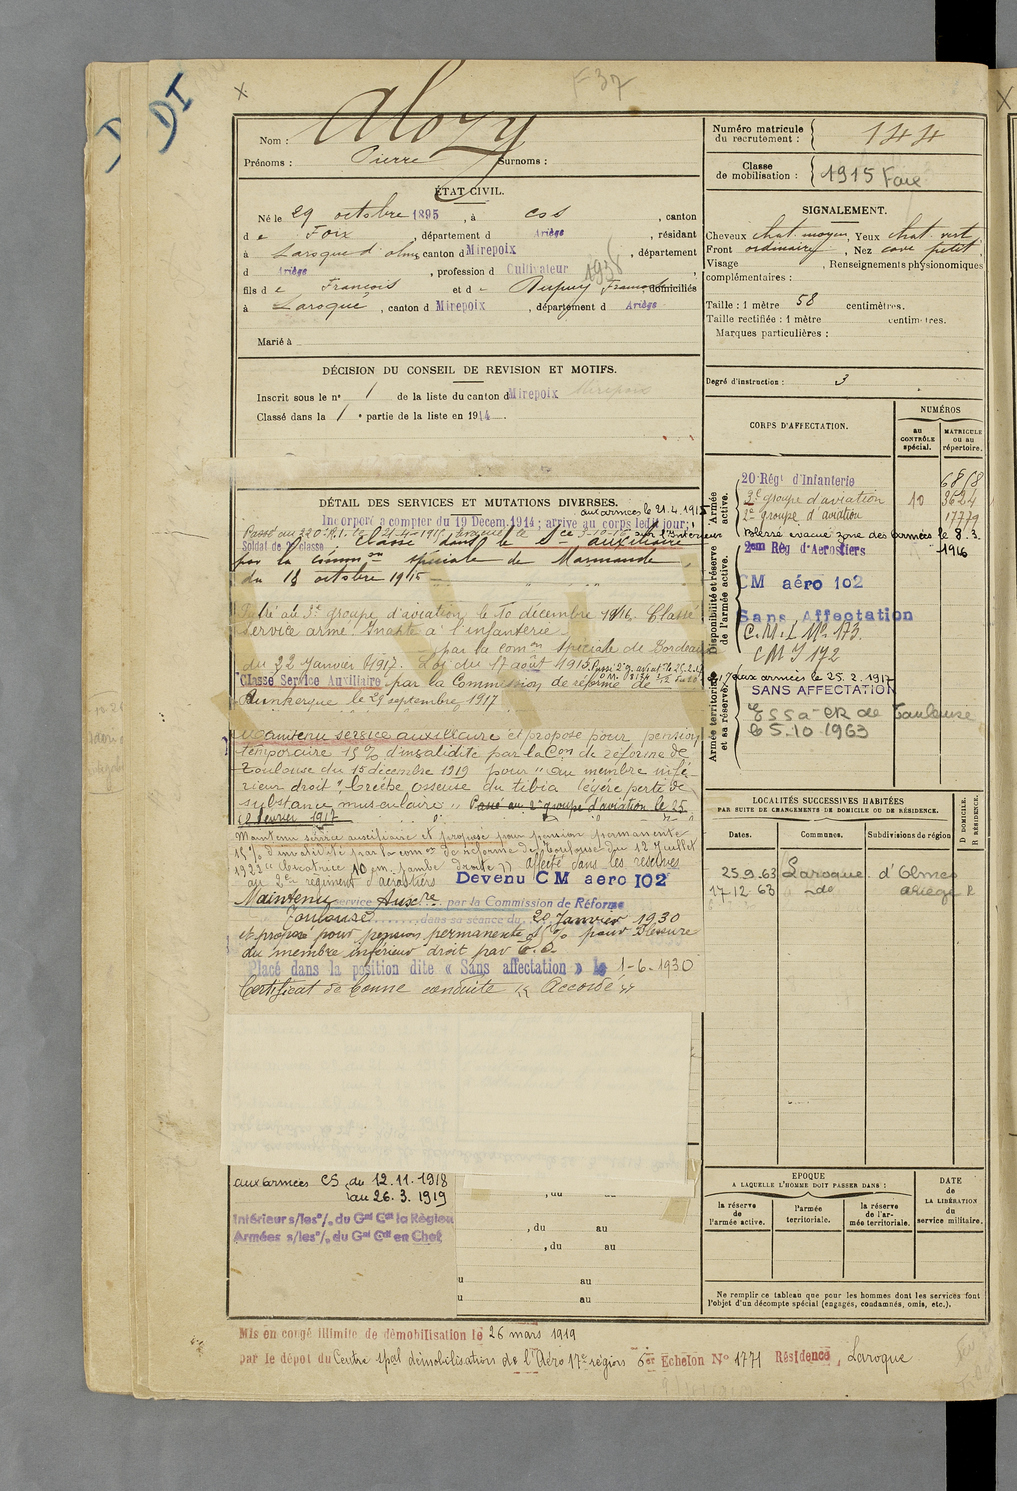 F 37
DI
Nom : Alozy
Prénoms : Pierre Surnoms :
ÉTAT CIVIL.
Né le 29 octobre 1895, à Cos, canton
de Foix, département d Ariège, résidant
à Laroque d'olmes canton d Mirepoix, département
d Ariège, profession d Cultivateur
1938
fils de François et de Dupuy Françoise domiciliés
à Laroque, canton d Mirepoix, département d Ariège
Marié à
DÉCISION DU CONSEIL DE REVISION ET MOTIFS.
Inscrit sous le n° 1 de la liste du canton d Mirepoix
Classé dans la 1e partie de la liste en 1914.
DÉTAIL DES SERVICES ET MUTATIONS DIVERSES.
aux armées le 21.4.1915
Incorporé à compter du 19 Décem. 1914 ; arrivé au corps ledit jour ;
Soldat de 2e classe
Classé dans le Sce auxiliaire
par la comm on spéciale de Marmande
du 18 octobre 1915
Passé au 3e groupe d'aviation le 10 décembre 1916. Classé
service armé. Inapte à l'infanterie
par la com on spéciale de Bordeaux
du 22 Janvier 1917. Loi du 17 août 1915.
Classé Service Auxiliaire par la Commission de réforme de
Dunkerque le 29 septembre 1917
Maintenu service auxiliaire et proposé pour pension
temporaire 15 % d'invalidité par la Con de réforme de
Toulouse du 15 décembre 1919 pour "au membre infé-
rieur droit", légère perte de
substance musculaire " Passé au 2e groupe d'aviation le 25
février 1917
Maintenu service auxiliaire et proposé pour pension permanente
15 % d'invalidité par la com on de réforme de Toulouse du 12 Juillet
1922 " Cicatrice 10 cm. jambe droite " affecté dans les réserves
au 2e régiment d'aérostiers Devenu CM aero 102
Maintenu service Auxre par la Commission de Réforme
Toulouse dans sa séance du 20 Janvier 1930
et proposé pour pension permanente 15 % pour Blessure
du membre inférieur droit par E.O.
Placé dans la position dite « Sans affectation » le 1-6-1930
Certificat de bonne conduite " Accordé "
aux armées CS du 12.11.1918
au 26.3.1919
Intérieur s/les o/. du Gal Ct la Région
Armées s/les o/. du Gal Ct en Chef
, du au
, du au
, du au
u au
u au
Mis en congé illimité de démobilisation le 26 mars 1919
par le dépôt du Centre spal démobilisation de l'Aéro 17e région 6e Echelon N° 1771 Résidence, Laroque
Numéro matricule
du recrutement : 144
Classe
de mobilisation : 1915 Foix
SIGNALEMENT.
Cheveux chat. moyen, Yeux chat. vert
Front ordinaire, Nez cave petit
Visage , Renseignements physionomiques
complémentaires :
Taille : 1 mètre 58 centimètres.
Taille rectifiée : 1 mètre centimètres.
Marques particulières :
Degré d'instruction : 3
CORPS D'AFFECTATION.
NUMÉROS
au
CONTRÔLE
spécial.
MATRICULE
ou au
répertoire.
Armée
active.
20 Régt d'Infanterie 6868
3e groupe d'aviation 10 3624
2e groupe d'aviation 17779
Blessé évacué zone des armées le 8.3.
1916
Disponibilité et réserve
de l'armée active.
2em Rég d'Aérostiers
CM aéro 102
Sans Affectation
C.M.I No 173.
CMI 172
Armée territoriale
et sa réserve.
aux armées le 25.2.1917
SANS AFFECTATION
ESSA-CR de Toulouse
le 5.10.1963
LOCALITÉS SUCCESSIVES HABITÉES
PAR SUITE DE CHANGEMENTS DE DOMICILE OU DE RÉSIDENCE.
Dates. Communes. Subdivisions de région
D DOMICILE.
R RÉSIDENCE.
25.9.63 Laroque d'Olmes
17.12.63 do Ariège R
EPOQUE
A LAQUELLE L'HOMME DOIT PASSER DANS :
DATE
de
LA LIBÉRATION
du
service militaire.
la réserve
de
l'armée active.
l'armée
territoriale.
la réserve
de l'ar-
mée territoriale.
Ne remplir ce tableau que pour les hommes dont les services font
l'objet d'un décompte spécial (engagés, condamnés, omis, etc.).